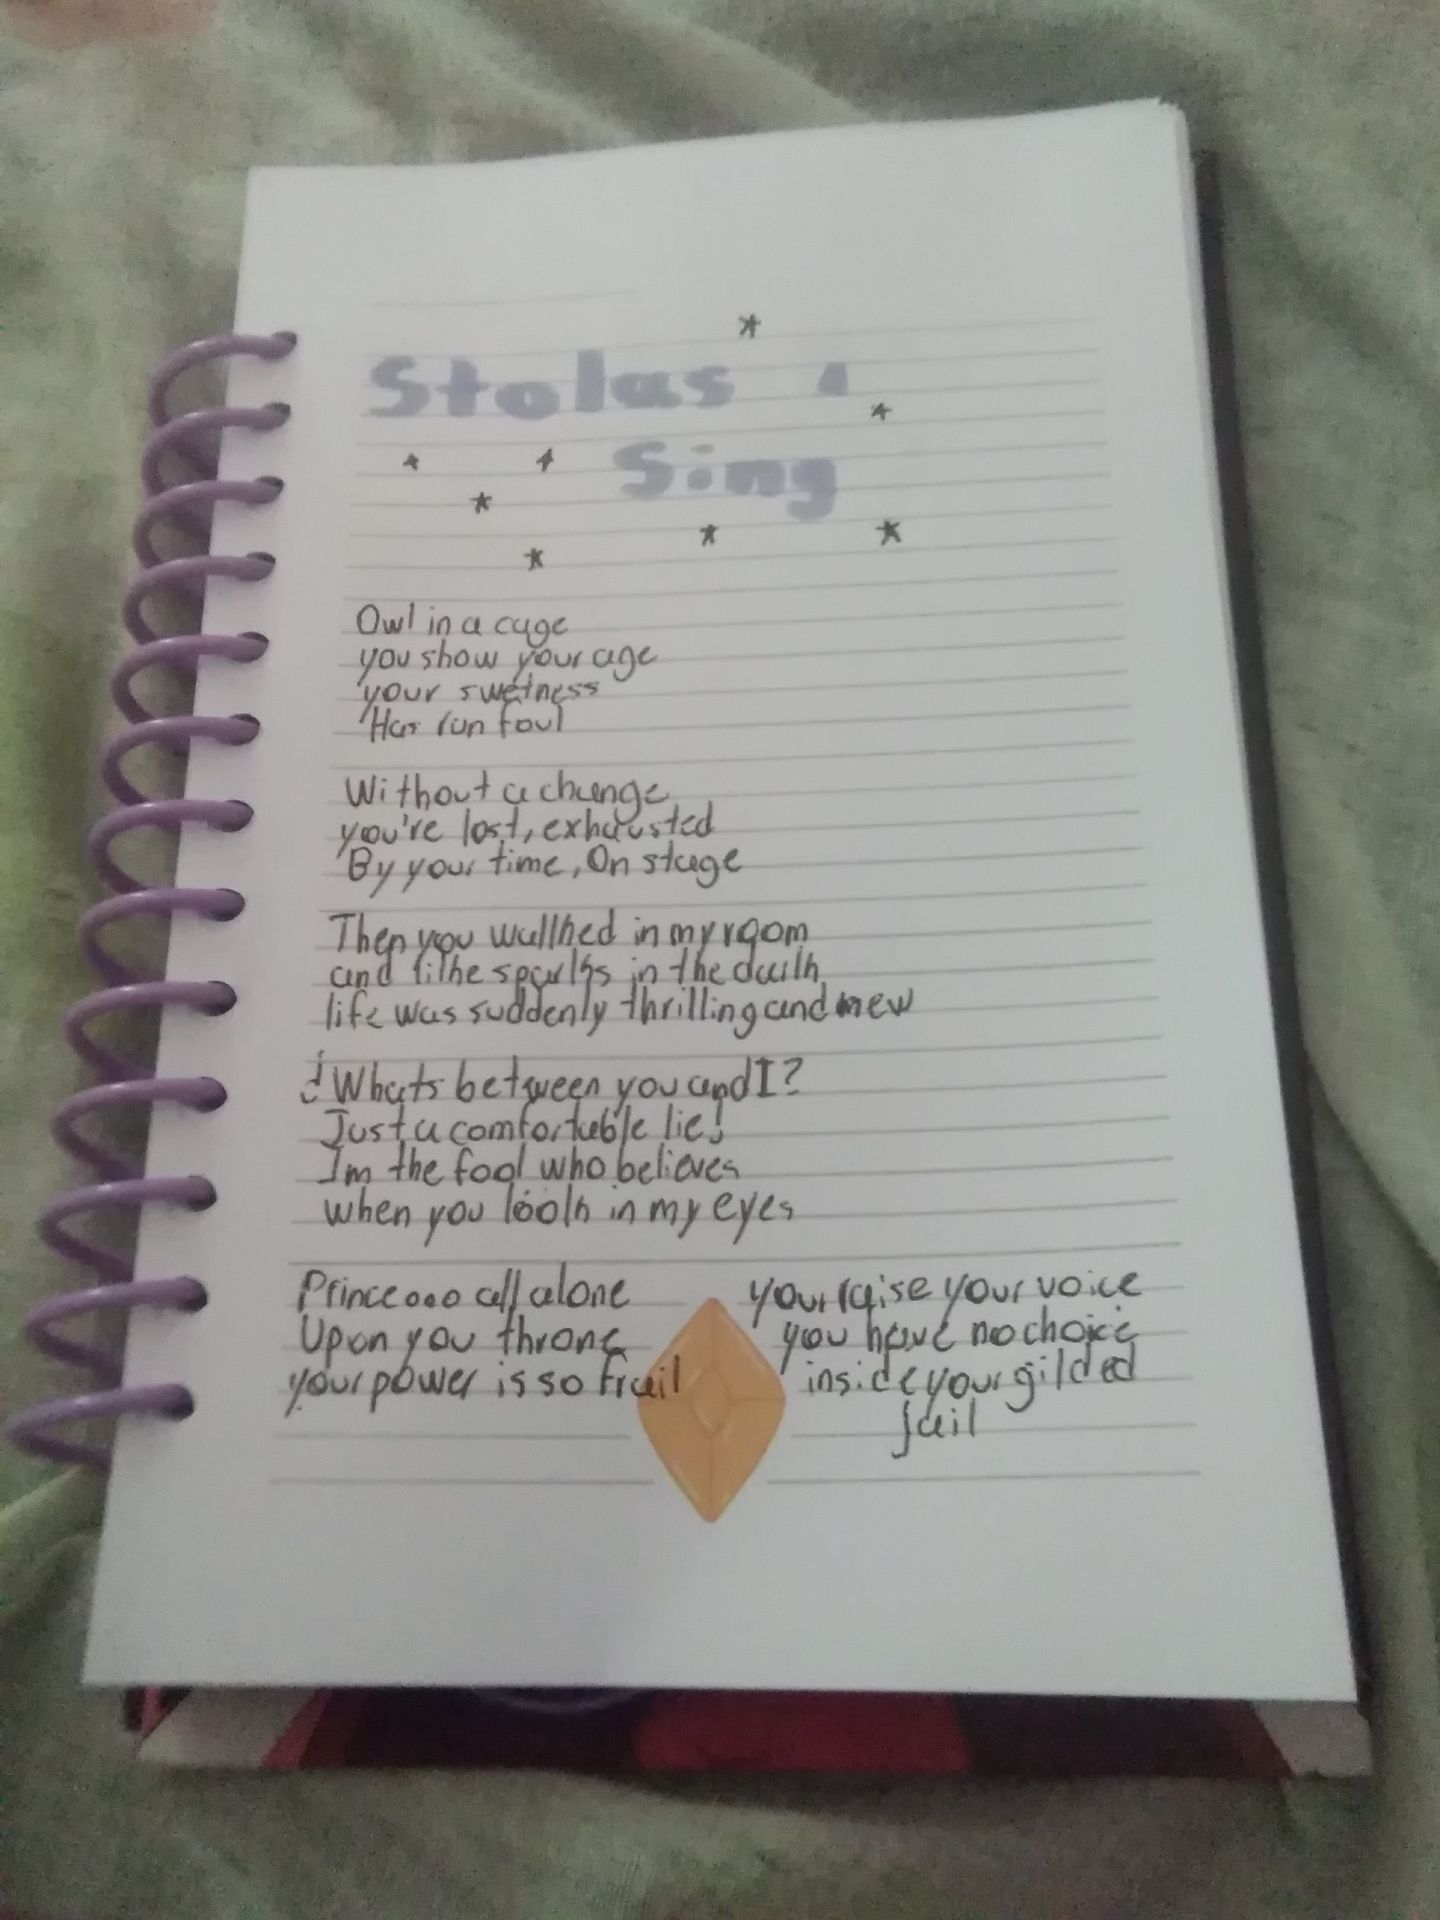 Stolas
Sing
Owl in a cage
you show your age
your swetness
Has run foul
Without a change
you're lost, exhausted
By your time, On stage
Then you wallked in my room
and like sparks in the dark
life was suddenly thrilling and new
¿Whats between you and I?
Just a comfortable lie!
Im the fool who believes
when you look in my eyes
Princeooo all alone
Upon you throne
your power is so frail
your raise your voice
you have no choice
inside your gilded
jail